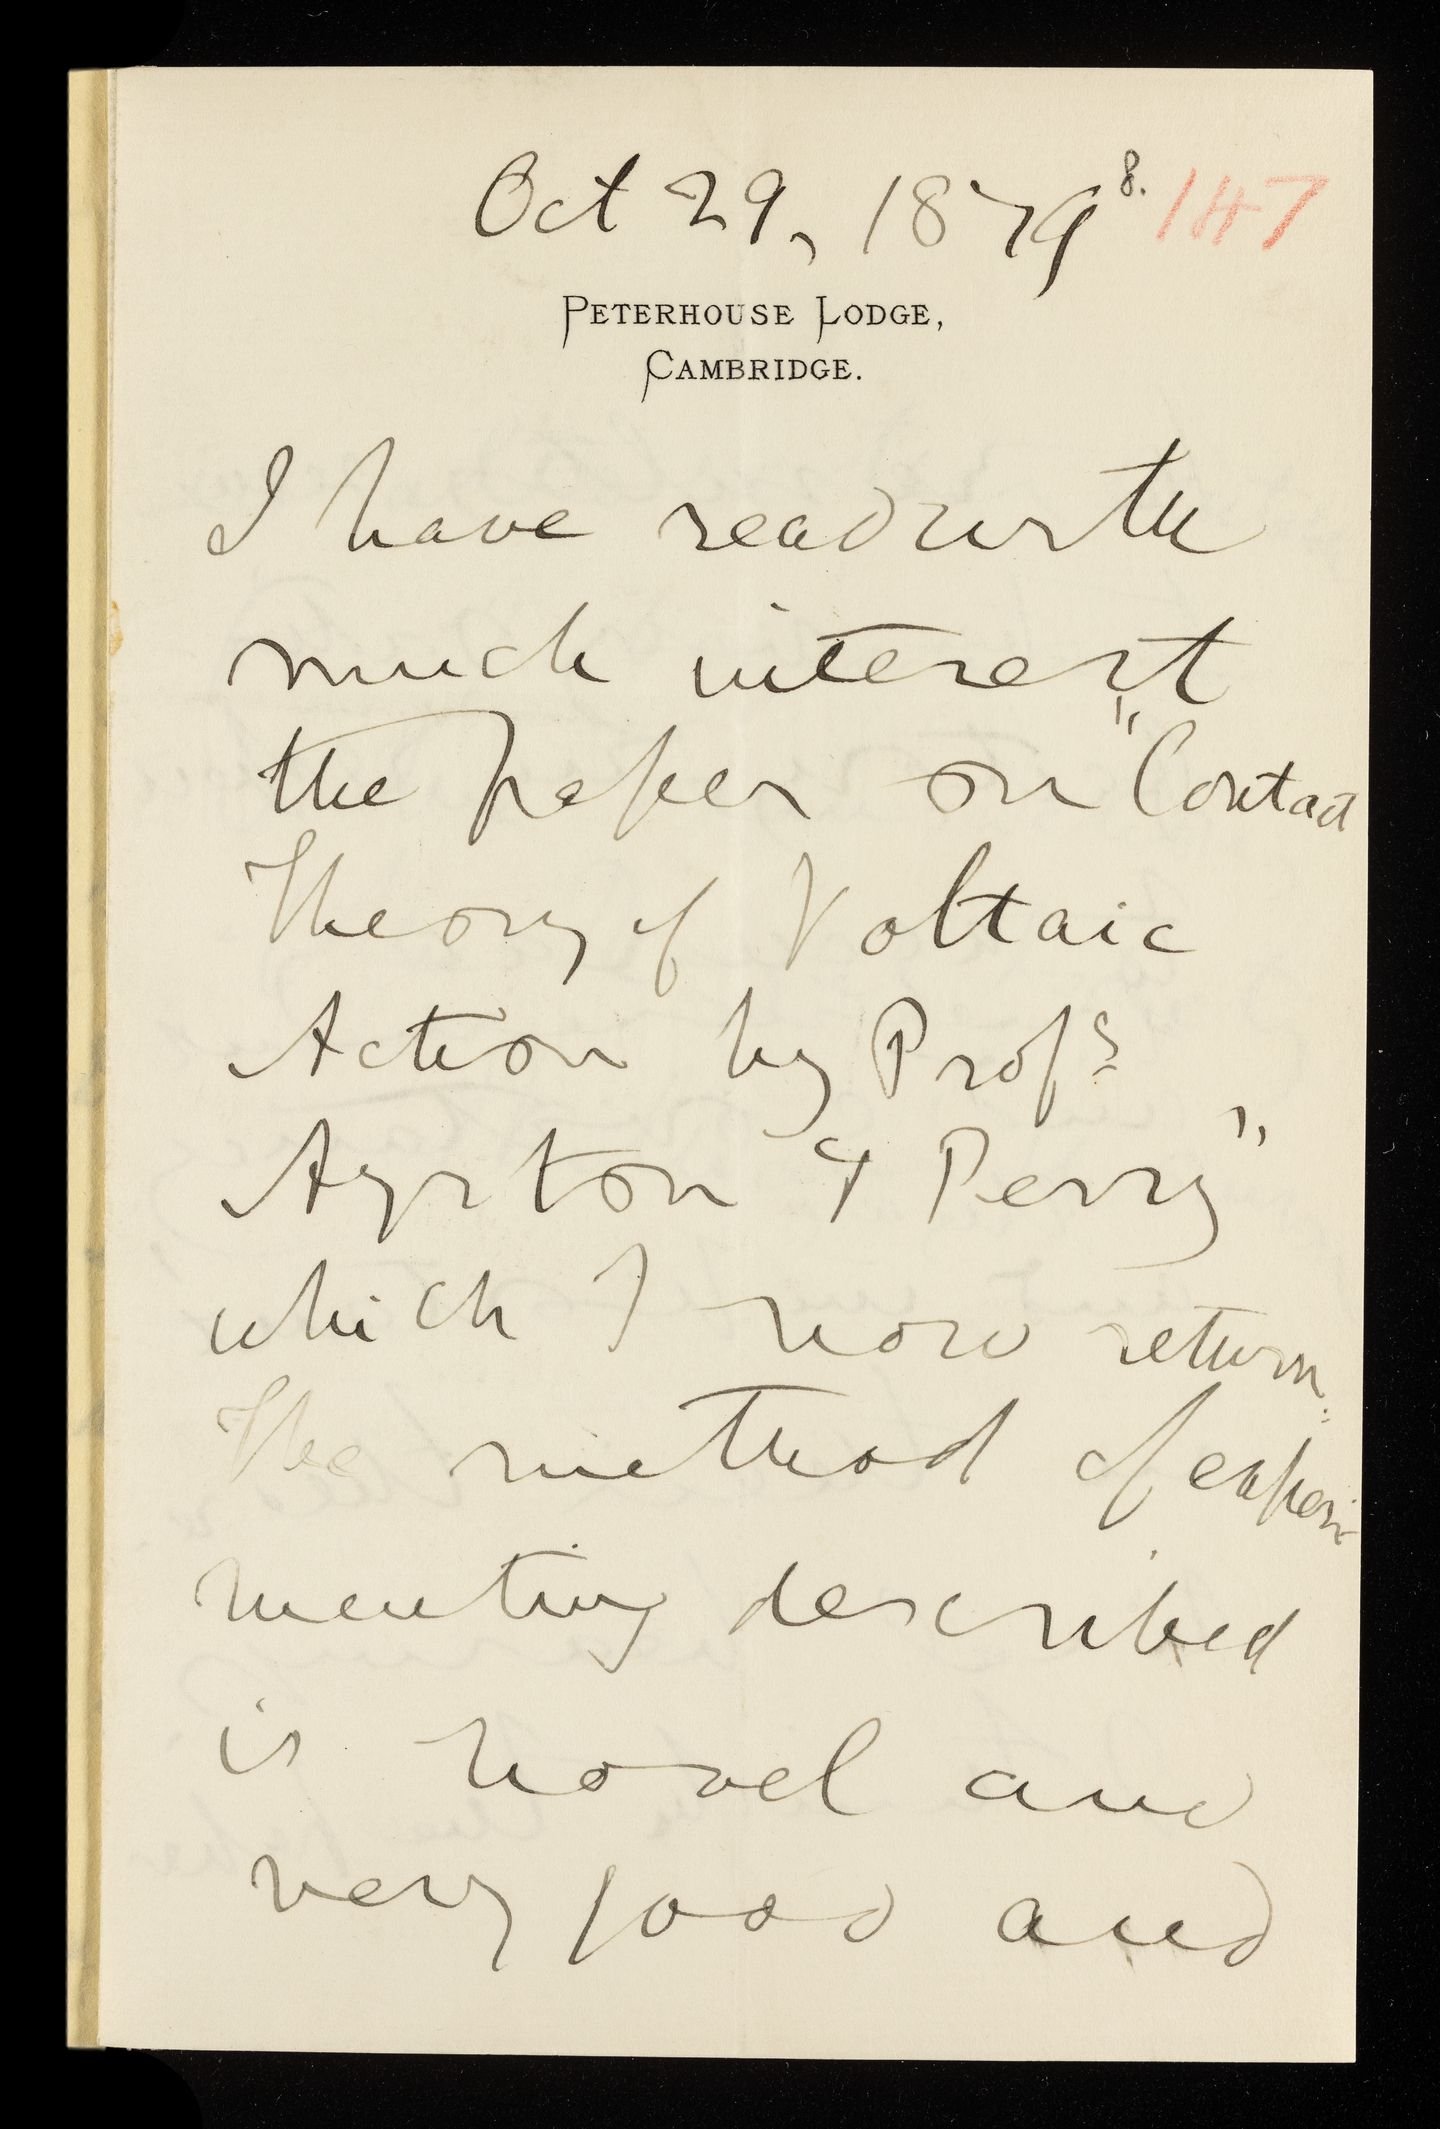 Oct 29, 1879 8. 147
PETERHOUSE LODGE,
CAMBRIDGE.
I have read with
much interest
the paper on "Contact
Theory of Voltaic
Action by Profs
Ayrton & Perry"
which I now return.
The method of experi
menting described
is novel and
very good and